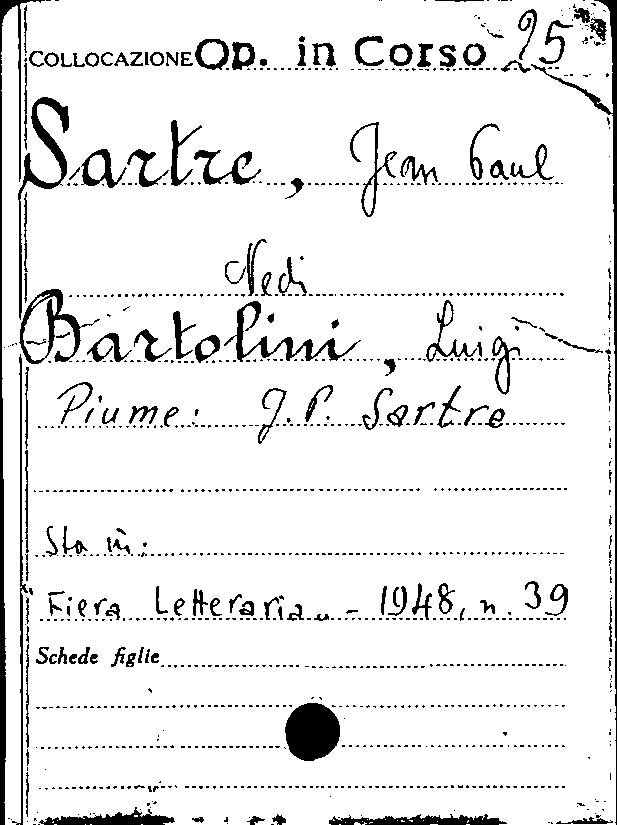 COLLOCAZIONE Op. in Corso 25
Sartre, Jean Paul
Vedi
Bartolini, Luigi
Piume: J.P. Sartre
Sta in:
"Fiera Letteraria" - 1948, n. 39
Schede figlie